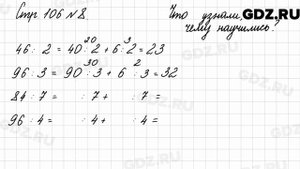 Стр. 106 № 8.
Что узнали,
чему научились?
GDZ.RU
20 3
46 : 2 = 40 : 2 + 6 : 2 = 23
30 2
96 : 3 = 90 : 3 + 6 : 3 = 32
84 : 7 = : 7 + : 7 =
96 : 4 = : 4 + : 4 =